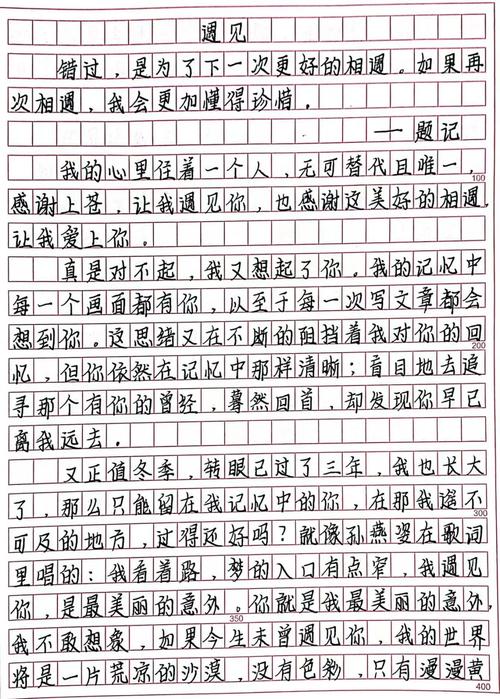 遇见
错过，是为了下一次更好的相遇。如果再
次相遇，我会更加懂得珍惜。
——题记
我的心里住着一个人，无可替代且唯一，
感谢上苍，让我遇见你，也感谢这美好的相遇，
100
让我爱上你。
真是对不起，我又想起了你。我的记忆中
每一个画面都有你，以至于每一次写文章都会
想到你。这思绪又在不断的阻挡着我对你的回
200
忆，但你依然在记忆中那样清晰；盲目地去追
寻那个有你的曾经，蓦然回首，却发现你早已
离我远去。
又正值冬季，转眼已过了三年，我也长大
了，那么只能留在我记忆中的你，在那我遥不
300
可及的地方，过得还好吗？就像孙燕姿在歌词
里唱的：我看着路，梦的入口有点窄，我遇见
你，是最美丽的意外。你就是我最美丽的意外，
350
我不敢想象，如果今生未曾遇见你，我的世界
将是一片荒凉的沙漠，没有色彩，只有漫漫黄
400